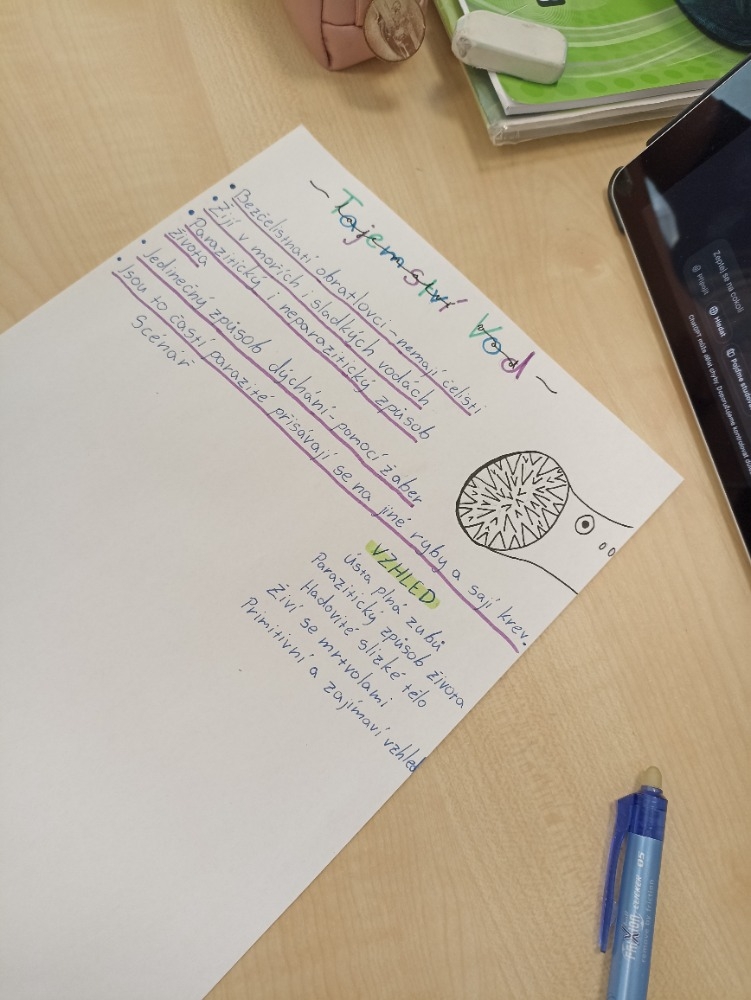 ~ Tajemství Vod ~
• Bezčelistnatí obratlovci - nemají čelisti
• Žijí v mořích i sladkých vodách
• Parazitický i neparazitický způsob
života
• Jedinečný způsob dýchání - pomocí žaber
• Jsou to častí parazité přisávají se na jiné ryby a sají krev.
Scénář
VZHLED
Ústa plná zubů
Parazitický způsob života
Hadovité slizké tělo
Živí se mrtvolami
Primitivní a zajímaví vzhled
Zeptej se na cokoli
Připojit
Hledat
Pojďme studovat
ChatGPT může dělat chyby. Doporučujeme kontrolovat
05